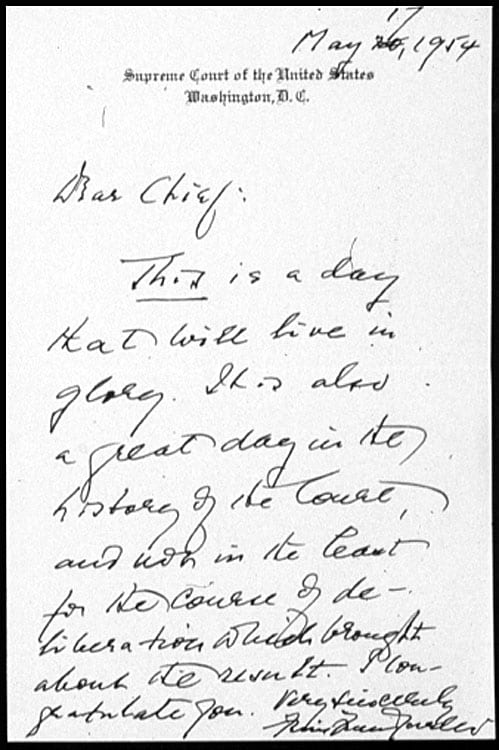 May 17, 1954
Supreme Court of the United States
Washington, D. C.
Dear Chief:
This is a day
that will live in
glory. It is also
a great day in the
history of the Court,
and not in the least
for the course of de-
liberation which brought
about the result. I con-
gratulate you. Very sincerely
Felix Frankfurter